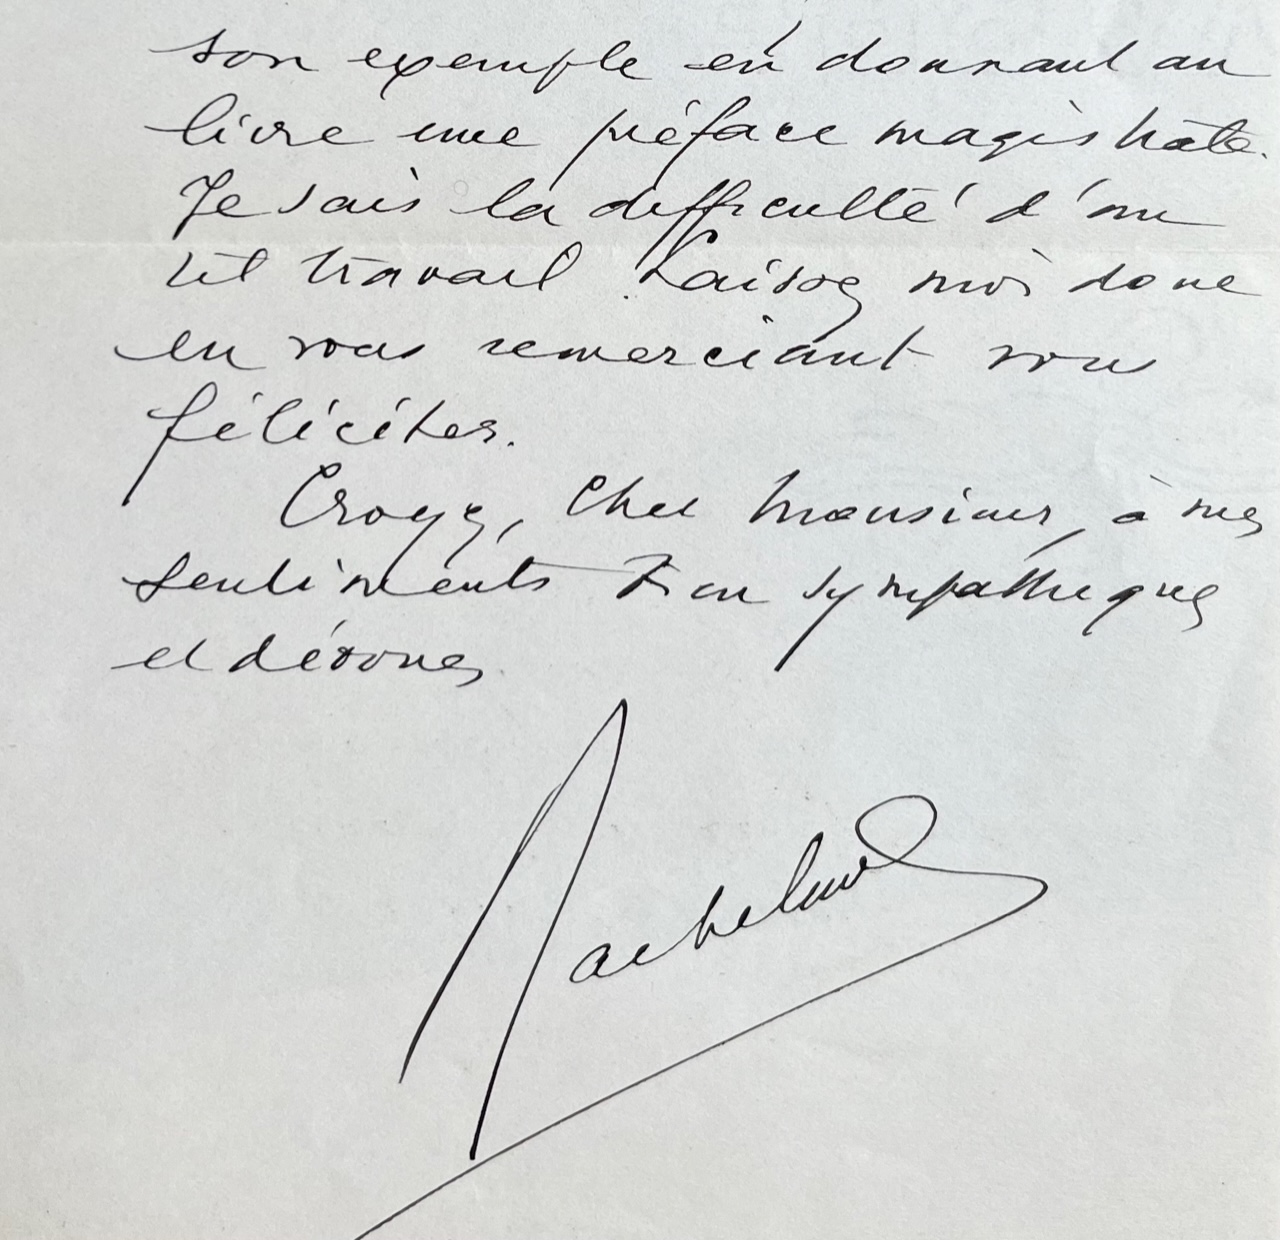 son exemple en donnant au
livre une préface magistrale.
Je sais la difficulté d'un
tel travail. Laissez moi donc
en vous remerciant vous
féliciter.
Croyez, cher Monsieur, à mes
sentiments bien sympathiques
et dévoués.
Bachelard